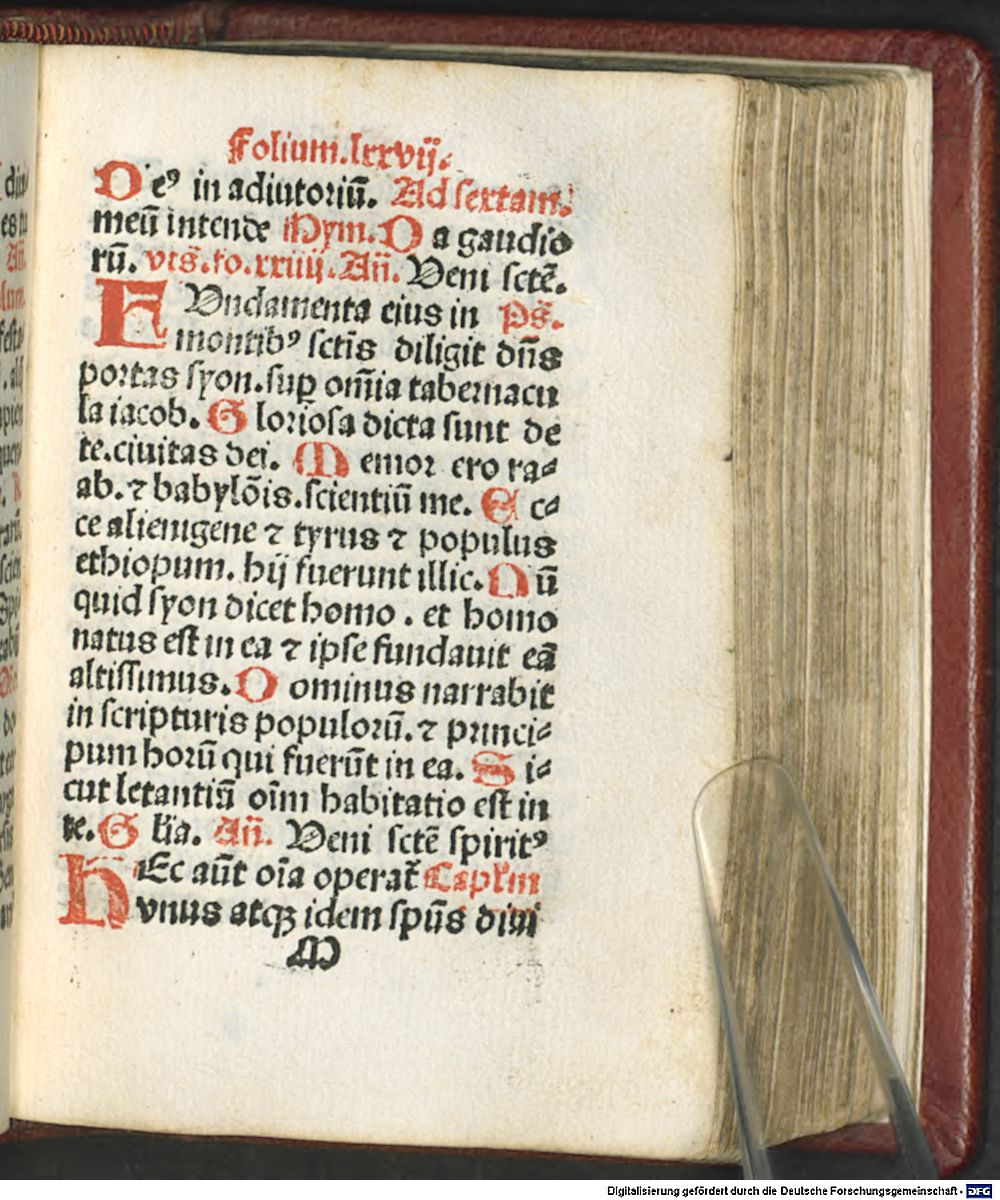 Folium.lxxvij.
De⁹ in adiutoriū. Ad sextam.
meū intende Hym. Da gaudio
rū. vts̄.fo.xxiiij. Añ. Veni sctē.
FVndamenta eius in ps̄.
montib⁹ sctīs diligit dñs
portas syon. sup̱ om̄ia tabernacu
la iacob. Gloriosa dicta sunt de
te. ciuitas dei. Memor ero ra⸗
ab. ⁊ babylōis. scientiū me. Ec⸗
ce alienigene ⁊ tyrus ⁊ populus
ethiopum. hij fuerunt illic. Nū
quid syon dicet homo. et homo
natus est in ea ⁊ ipse fundauit eā
altissimus. Dominus narrabit
in scripturis populorū. ⁊ princi⸗
pum horū qui fuerūt in ea. Si⸗
cut letantiū oīm habitatio est in
te. Glia. Añ. Veni sctē spirit⁹
HEc aūt oīa operat̄ Caplm
vnus atqꝫ idem spūs diui
M
Digitalisierung gefördert durch die Deutsche Forschungsgemeinschaft - DFG